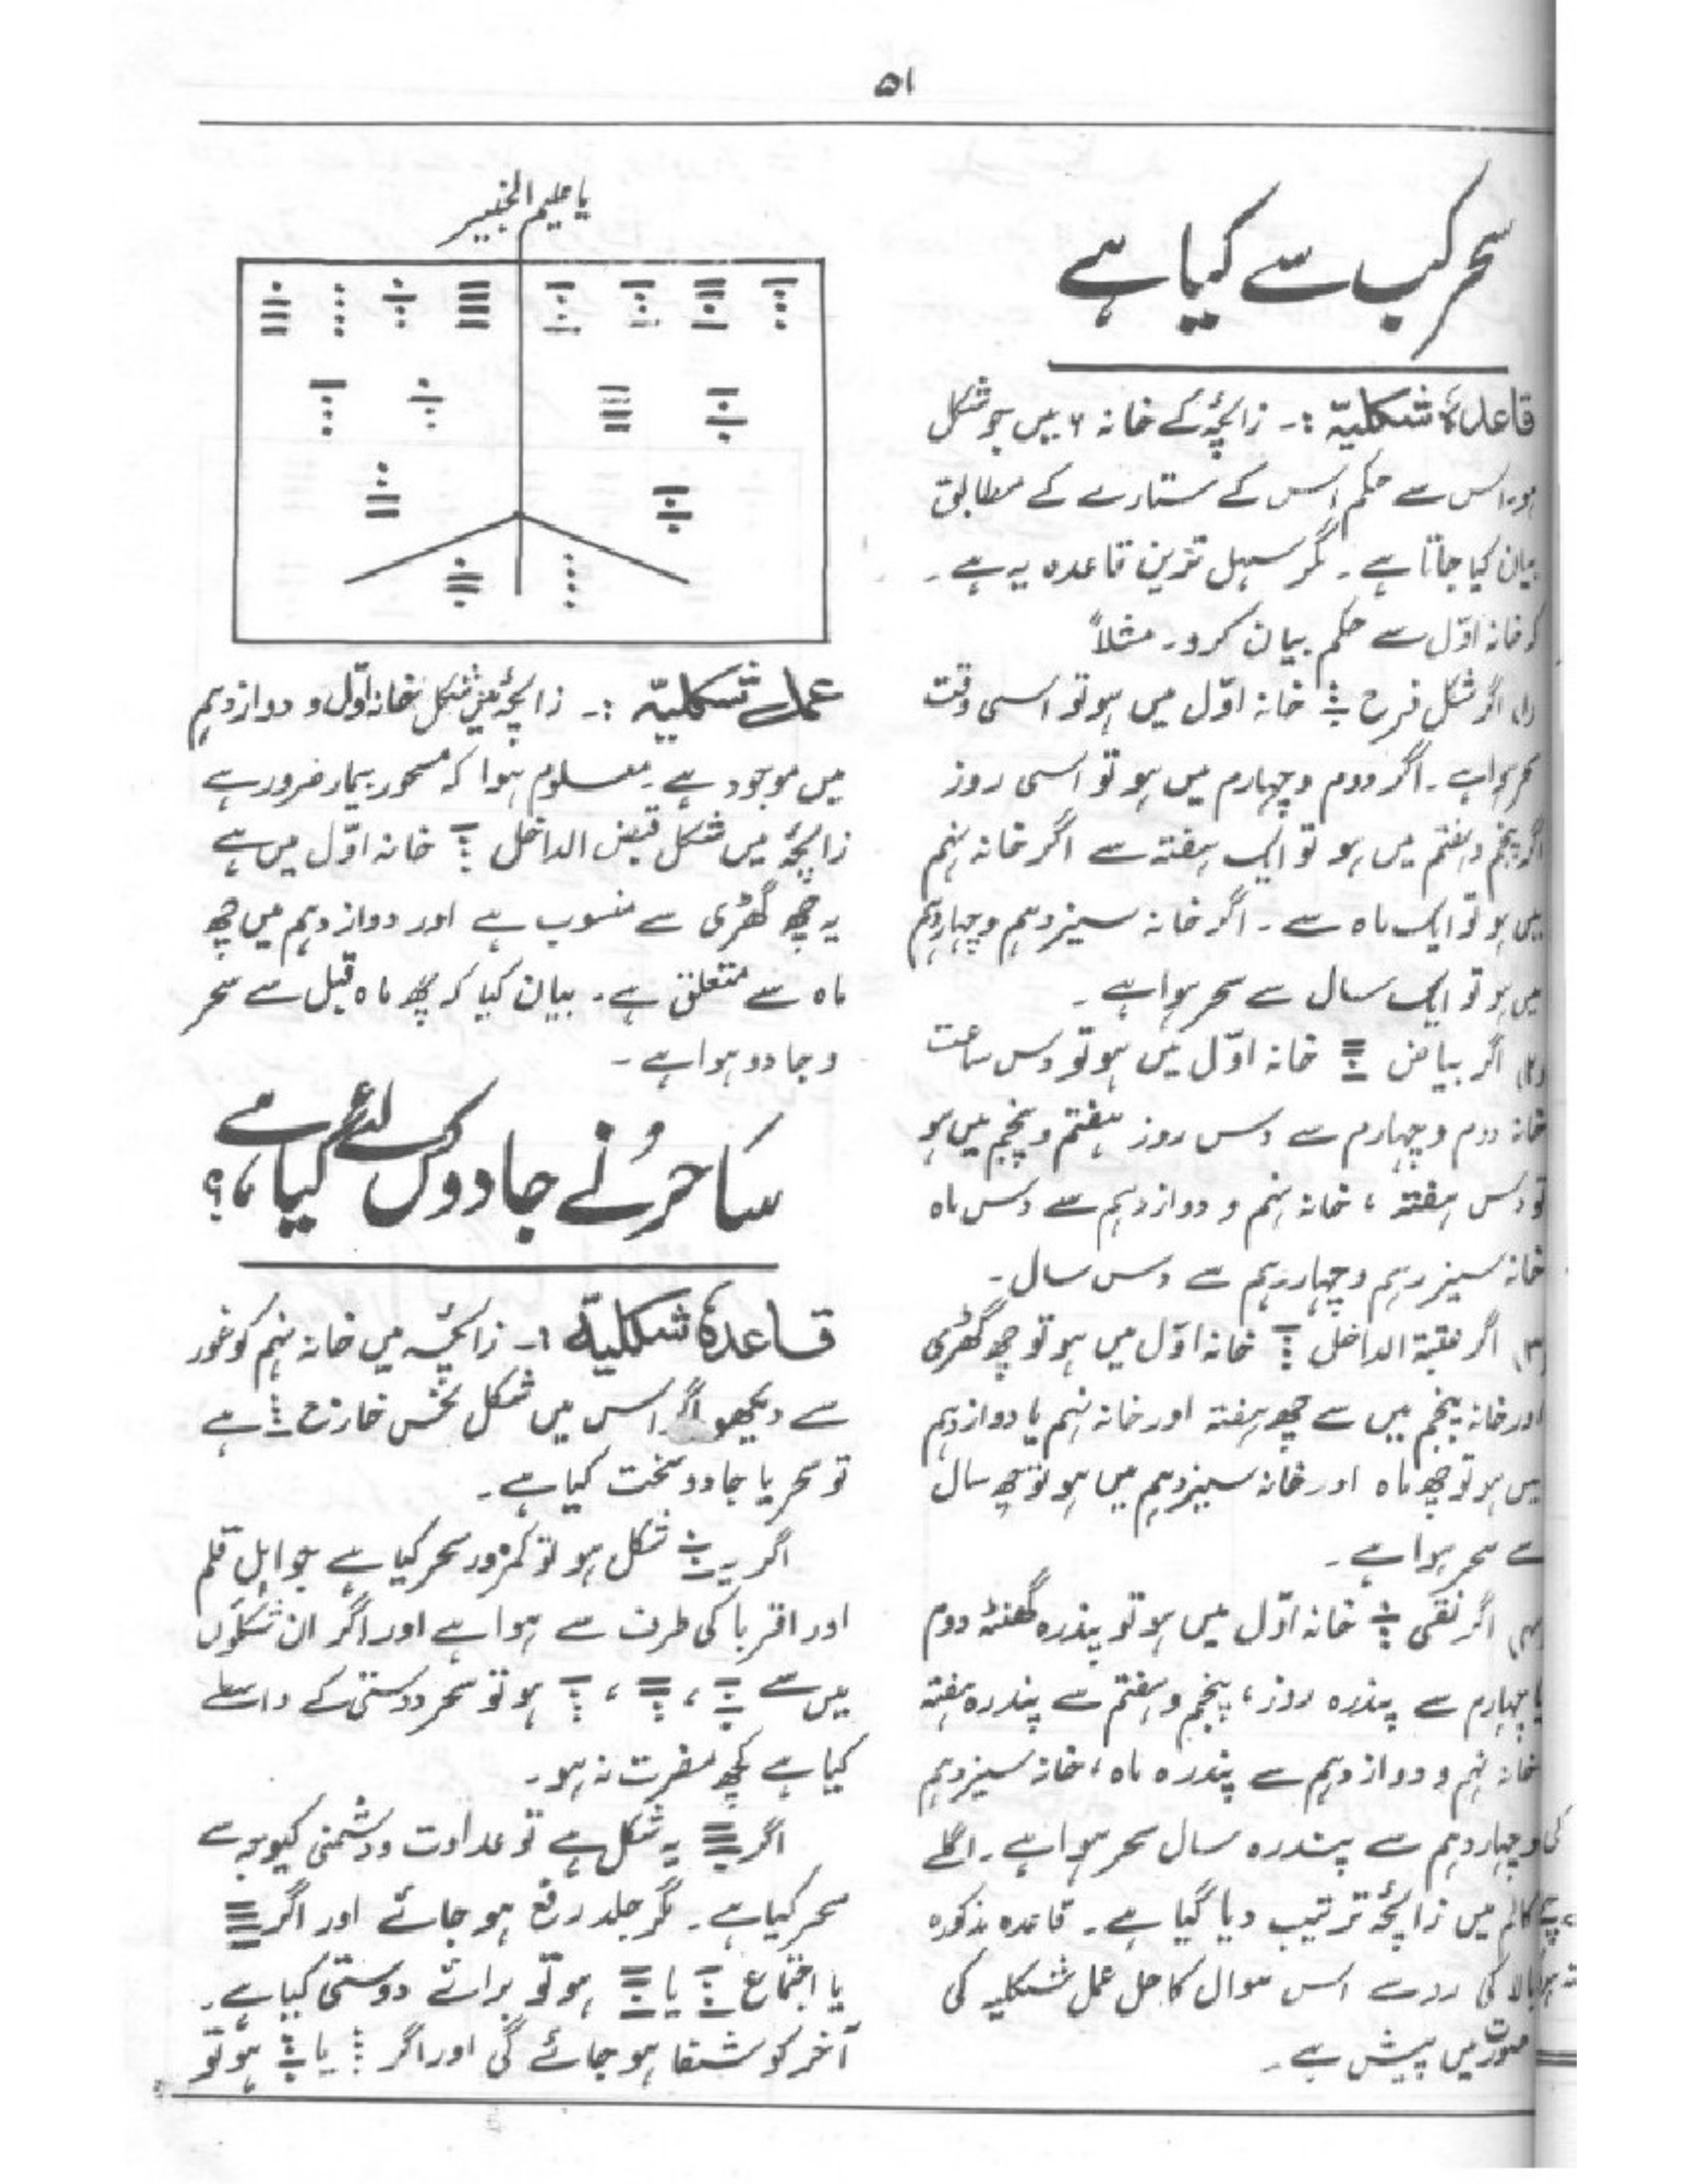 ۵۱
سحر کب سے کیا ہے
قاعدۂ شکلیّہ :۔ زائچہ کے خانہ ۶ میں جو شکل
ہو۔ اس سے حکم اس کے ستارے کے مطابق
بیان کیا جاتا ہے۔ مگر سہل ترین قاعدہ یہ ہے۔
کہ خانہ اوّل سے حکم بیان کرو۔ مثلاً
(۱) اگر شکل فرح خانہ اوّل میں ہو تو اسی وقت
سحر ہوا ہے۔ اگر دوم و چہارم میں ہو تو اسی روز
اگر پنجم و ہفتم میں ہو تو ایک ہفتہ سے اگر خانہ نہم
میں ہو تو ایک ماہ سے۔ اگر خانہ سیزدہم و چہاردہم
میں ہو تو ایک سال سے سحر ہوا ہے۔
(۲) اگر بیاض خانہ اوّل میں ہو تو دس ساعت
خانہ دوم و چہارم سے دس روز ہفتم و پنجم میں ہو
تو دس ہفتہ ، خانہ نہم و دوازدہم سے دس ماہ
خانہ سیزدہم و چہاردہم سے دس سال۔
(۳) اگر عتبۃ الداخل خانہ اوّل میں ہو تو چھ گھڑی
اور خانہ پنجم میں سے چھ ہفتہ اور خانہ نہم یا دوازدہم
میں ہو تو چھ ماہ اور خانہ سیزدہم میں ہو تو چھ سال
سے سحر ہوا ہے۔
(۴) اگر نقی خانہ اوّل میں ہو تو پندرہ گھنٹہ دوم
یا چہارم سے پندرہ روز، پنجم و ہفتم سے پندرہ ہفتہ
خانہ نہم و دوازدہم سے پندرہ ماہ، خانہ سیزدہم
و چہاردہم سے پندرہ سال سحر ہوا ہے۔ اگلے
کالم میں زائچہ ترتیب دیا گیا ہے۔ قاعدہ مذکورہ
بالا کی رو سے اس سوال کا حل عمل شکلیہ کی
صورت میں پیش ہے۔
یا علیم الخبیر
عمل شکلیّہ :۔ زائچہ میں شکل خانہ اوّل و دوازدہم
میں موجود ہے۔ معلوم ہوا کہ مسحور بیمار ضرور ہے
زائچہ میں شکل قبض الداخل خانہ اوّل میں ہے
یہ چھ گھڑی سے منسوب ہے اور دوازدہم میں چھ
ماہ سے متعلق ہے۔ بیان کیا کہ چھ ماہ قبل سے سحر
و جادو ہوا ہے۔
ساحر نے جادو کس لئے کیا ہے؟
قاعدۂ شکلیّہ :۔ زائچہ میں خانہ نہم کو غور
سے دیکھو اگر اس میں شکل نحس خارج ہے
تو سحر یا جادو سخت کیا ہے۔
اگر یہ شکل ہو تو کمزور سحر کیا ہے جو اہل قلم
اور اقربا کی طرف سے ہوا ہے اور اگر ان شکلوں
میں سے ، ، ہو تو سحر دوستی کے واسطے
کیا ہے کچھ مضرت نہ ہو۔
اگر یہ شکل ہے تو عداوت و دشمنی کیوجہ سے
سحر کیا ہے۔ مگر جلد رفع ہو جائے اور اگر
یا اجتماع یا ہو تو برائے دوستی کیا ہے۔
آخر کو شفا ہو جائے گی اور اگر یا ہو تو